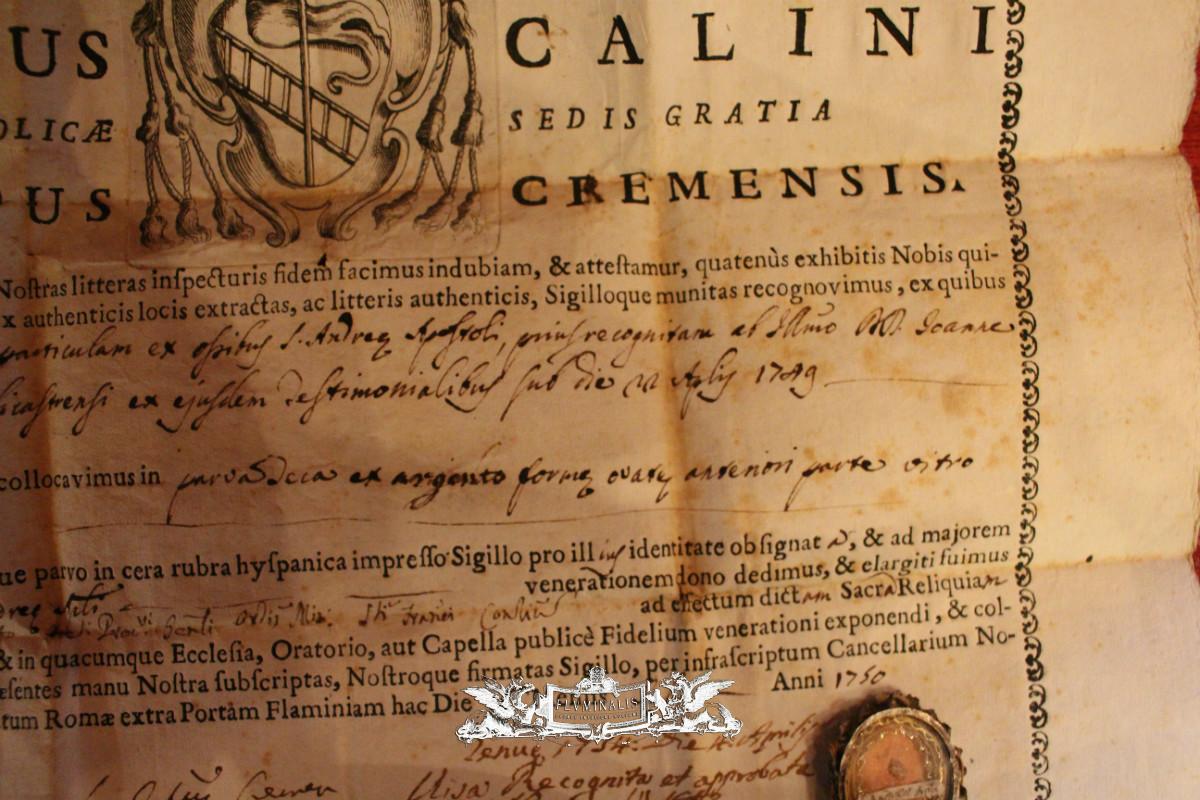 US CALINI
OLICÆ SEDIS GRATIA
PUS CREMENSIS.
Noſtras litteras inſpecturis fidem facimus indubiam, & atteſtamur, quatenùs exhibitis Nobis qui-
ex authenticis locis extractas, ac litteris authenticis, Sigilloque munitas recognovimus, ex quibus
particulam ex ossibus S. Andreę Apostoli, prius recognitam ab Illmo RD. Joanne
icastrensi ex ejusdem Testimonialibus sub die Aplis 1749
collocavimus in parva Teca ex argento formę ovatę anteriori parte vitro
ue parvo in cera rubra hyſpanica impreſſo Sigillo pro ill ius identitate obſignat a, & ad majorem
venerationem dono dedimus, & elargiti fuimus
ad effectum dictam SacraReliquiam
& in quacumque Eccleſia, Oratorio, aut Capella publicè Fidelium venerationi exponendi, & col-
æſentes manu Noſtra ſubſcriptas, Noſtroque firmatas Sigillo, per infraſcriptum Cancellarium No-
tum Romæ extra Portam Flaminiam hac Die Anni 1750
FLVMINALIS
Aprilis
Visa Recognita et approbata